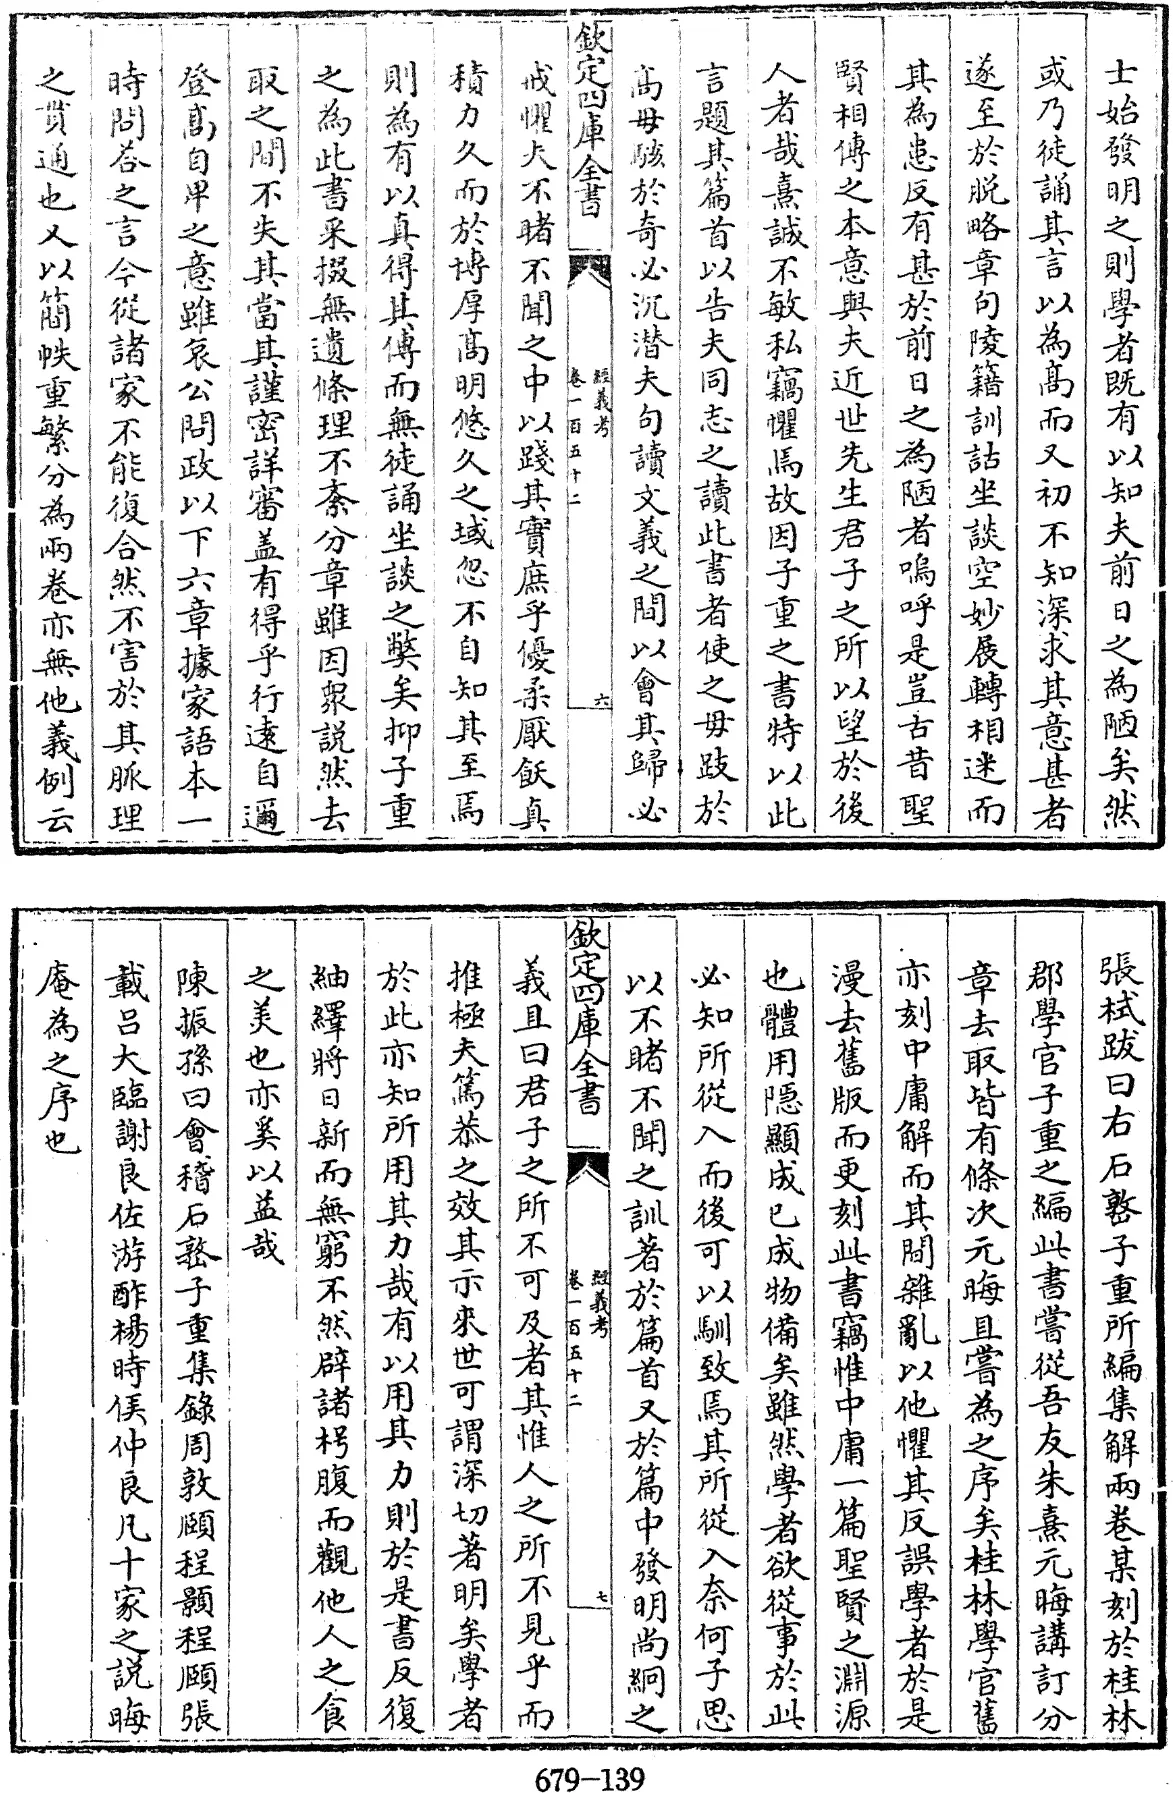 士始發明之則學者既有以知夫前日之為陋矣然
或乃徒誦其言以為髙而又初不知深求其意甚者
遂至於脱略章句陵籍訓詁坐談空妙展轉相迷而
其為患反有甚於前日之為陋者嗚呼是豈古昔聖
賢相傳之本意與夫近世先生君子之所以望於後
人者哉熹誠不敏私竊懼焉故因子重之書特以此
言題其篇首以告夫同志之讀此書者使之毋跂於
髙毋駭於奇必沉潜夫句讀文義之間以會其歸必
欽定四庫全書
經義考
卷一百五十二
六
戒懼夫不睹不聞之中以踐其實庶乎優柔厭飫真
積力久而於博厚髙明悠久之域忽不自知其至焉
則為有以真得其傳而無徒誦坐談之弊矣抑子重
之為此書采掇無遺條理不紊分章雖因衆說然去
取之間不失其當其謹密詳審盖有得乎行遠自邇
登髙自卑之意雖哀公問政以下六章據家語本一
時問荅之言今從諸家不能復合然不害於其脈理
之貫通也又以簡帙重繁分為兩卷亦無他義例云
張栻跋曰右石𡼖子重所編集解兩卷某刻於桂林
郡學官子重之編此書嘗從吾友朱熹元晦講訂分
章去取皆有條次元晦且嘗為之序矣桂林學官舊
亦刻中庸解而其間雜亂以他懼其反誤學者於是
漫去舊版而更刻此書竊惟中庸一篇聖賢之淵源
也體用隠顯成已成物備矣雖然學者欲從事於此
必知所從入而後可以馴致焉其所從入奈何子思
以不睹不聞之訓著於篇首又於篇中發明尚絅之
欽定四庫全書
經義考
卷一百五十二
七
義且曰君子之所不可及者其惟人之所不見乎而
推極夫篤恭之效其示來世可謂深切著明矣學者
於此亦知所用其力哉有以用其力則於是書反復
紬繹將日新而無窮不然辟諸枵腹而觀他人之食
之美也亦奚以益哉
陳振孫曰會稽石𡼖子重集錄周敦頤程顥程頤張
載吕大臨謝良佐游酢楊時侯仲良凡十家之說晦
庵為之序也
679-139